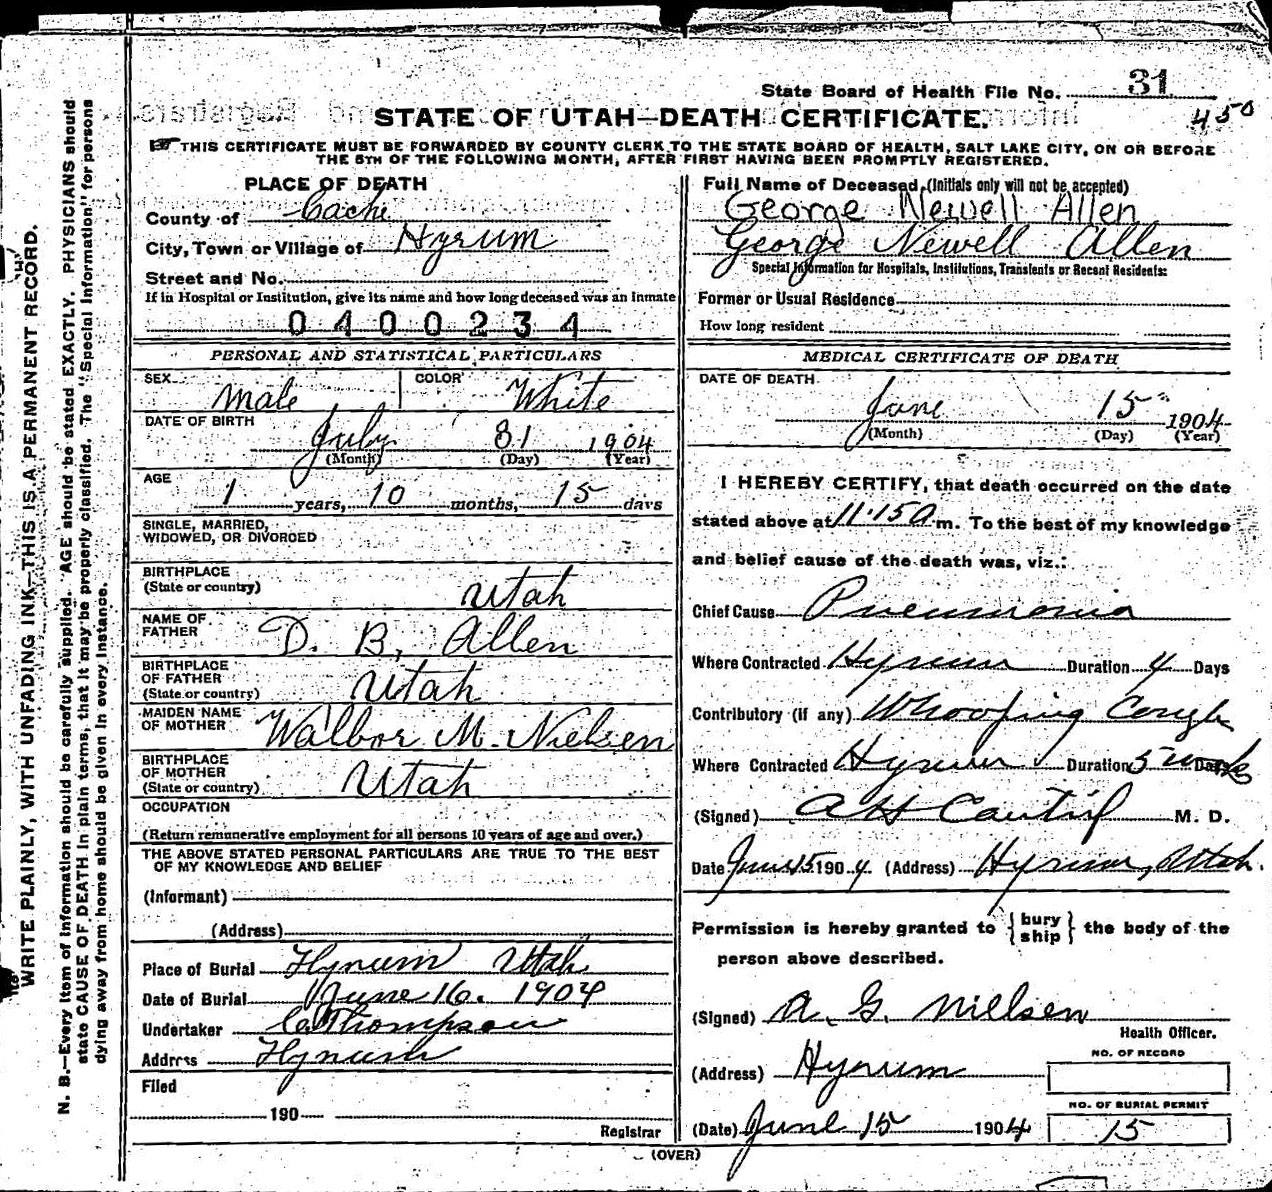 State Board of Health File No. 31
450
STATE OF UTAH—DEATH CERTIFICATE.
THIS CERTIFICATE MUST BE FORWARDED BY COUNTY CLERK TO THE STATE BOARD OF HEALTH, SALT LAKE CITY, ON OR BEFORE
THE 5TH OF THE FOLLOWING MONTH, AFTER FIRST HAVING BEEN PROMPTLY REGISTERED.
PLACE OF DEATH
County of Cache
City, Town or Village of Hyrum
Street and No.
If in Hospital or Institution, give its name and how long deceased was an inmate
0400234
PERSONAL AND STATISTICAL PARTICULARS
SEX Male COLOR White
DATE OF BIRTH
July 31 1904
(Month) (Day) (Year)
AGE
1 years, 10 months, 15 days
SINGLE, MARRIED,
WIDOWED, OR DIVORCED
BIRTHPLACE
(State or country) Utah
NAME OF
FATHER D. B. Allen
BIRTHPLACE
OF FATHER
(State or country) Utah
MAIDEN NAME
OF MOTHER Walbor M. Nielsen
BIRTHPLACE
OF MOTHER
(State or country) Utah
OCCUPATION
(Return remunerative employment for all persons 10 years of age and over.)
THE ABOVE STATED PERSONAL PARTICULARS ARE TRUE TO THE BEST
OF MY KNOWLEDGE AND BELIEF
(Informant)
(Address)
Place of Burial Hyrum Utah
Date of Burial June 16. 1904
Undertaker Thompson
Address Hyrum
Filed
190
Registrar
Full Name of Deceased (Initials only will not be accepted)
George Newell Allen
George Newell Allen
Special Information for Hospitals, Institutions, Transients or Recent Residents:
Former or Usual Residence
How long resident
MEDICAL CERTIFICATE OF DEATH
DATE OF DEATH
June 15 1904
(Month) (Day) (Year)
I HEREBY CERTIFY, that death occurred on the date
stated above at 11.15 a m. To the best of my knowledge
and belief cause of the death was, viz.:
Chief Cause Pneumonia
Where Contracted Hyrum Duration 4 Days
Contributory (if any) Whooping Cough
Where Contracted Hyrum Duration 5 weeks Days
(Signed) A H M. D.
Date June 15 1904. (Address) Hyrum, Utah.
Permission is hereby granted to { bury
ship } the body of the
person above described.
(Signed) A. G. Nillsen
Health Officer.
(Address) Hyrum
NO. OF RECORD
NO. OF BURIAL PERMIT
15
(Date) June 15 1904
(OVER)
WRITE PLAINLY, WITH UNFADING INK—THIS IS A PERMANENT RECORD.
N. B.—Every item of information should be carefully supplied. AGE should be stated EXACTLY. PHYSICIANS should
state CAUSE OF DEATH in plain terms, that it may be properly classified. The "Special Information" for persons
dying away from home should be given in every instance.